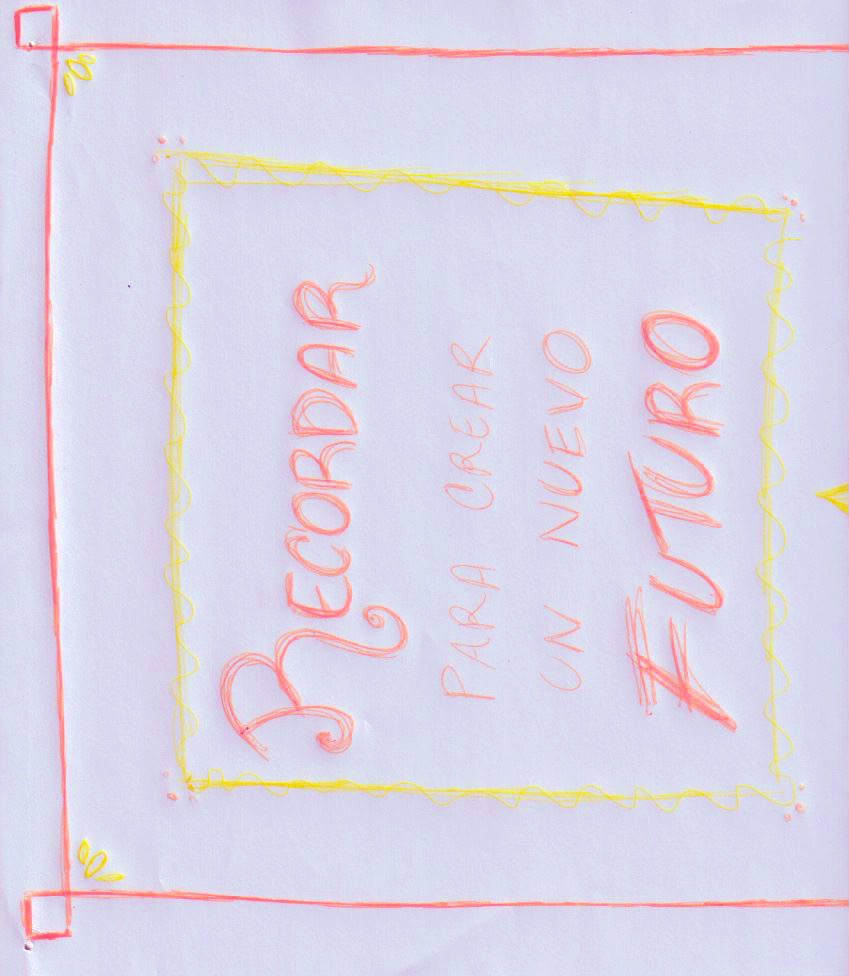 RECORDAR
PARA CREAR
UN NUEVO
FUTURO